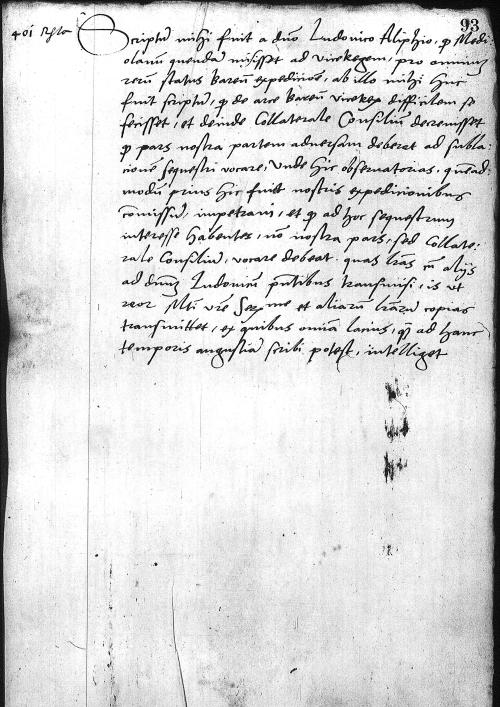 93
401 Rgta
Scriptu mihi fuit a dno Ludovico Aliphio, q Medi:
olanum quendam misisset ad viceregem, pro omnium
reru status Baren expedicioe, ab illo mihi huc
fuit scriptu, q de arce Baren vicerex difficilem se
fecisset, et deinde Collaterale Consiliu decrevisset
q pars nostra partem adversam deberet ad subla:
cione sequestri vocare, Unde hic observatorias, quead:
modu prius hic fuit nostris expedicionibus
comissu, impetravi, et q ad hoc sequestrum
interesse habentes, no nostra pars, sed Collate:
rale Consiliu, vocare debeat. quas lras cu alijs
ad dnum Ludovicu pntibus transmisi, is ut
reor Mti vre Serme et aliaru lraru copias
transmittet, ex quibus omnia lacius, q ad hanc
temporis angustia scribi potest, intelliget